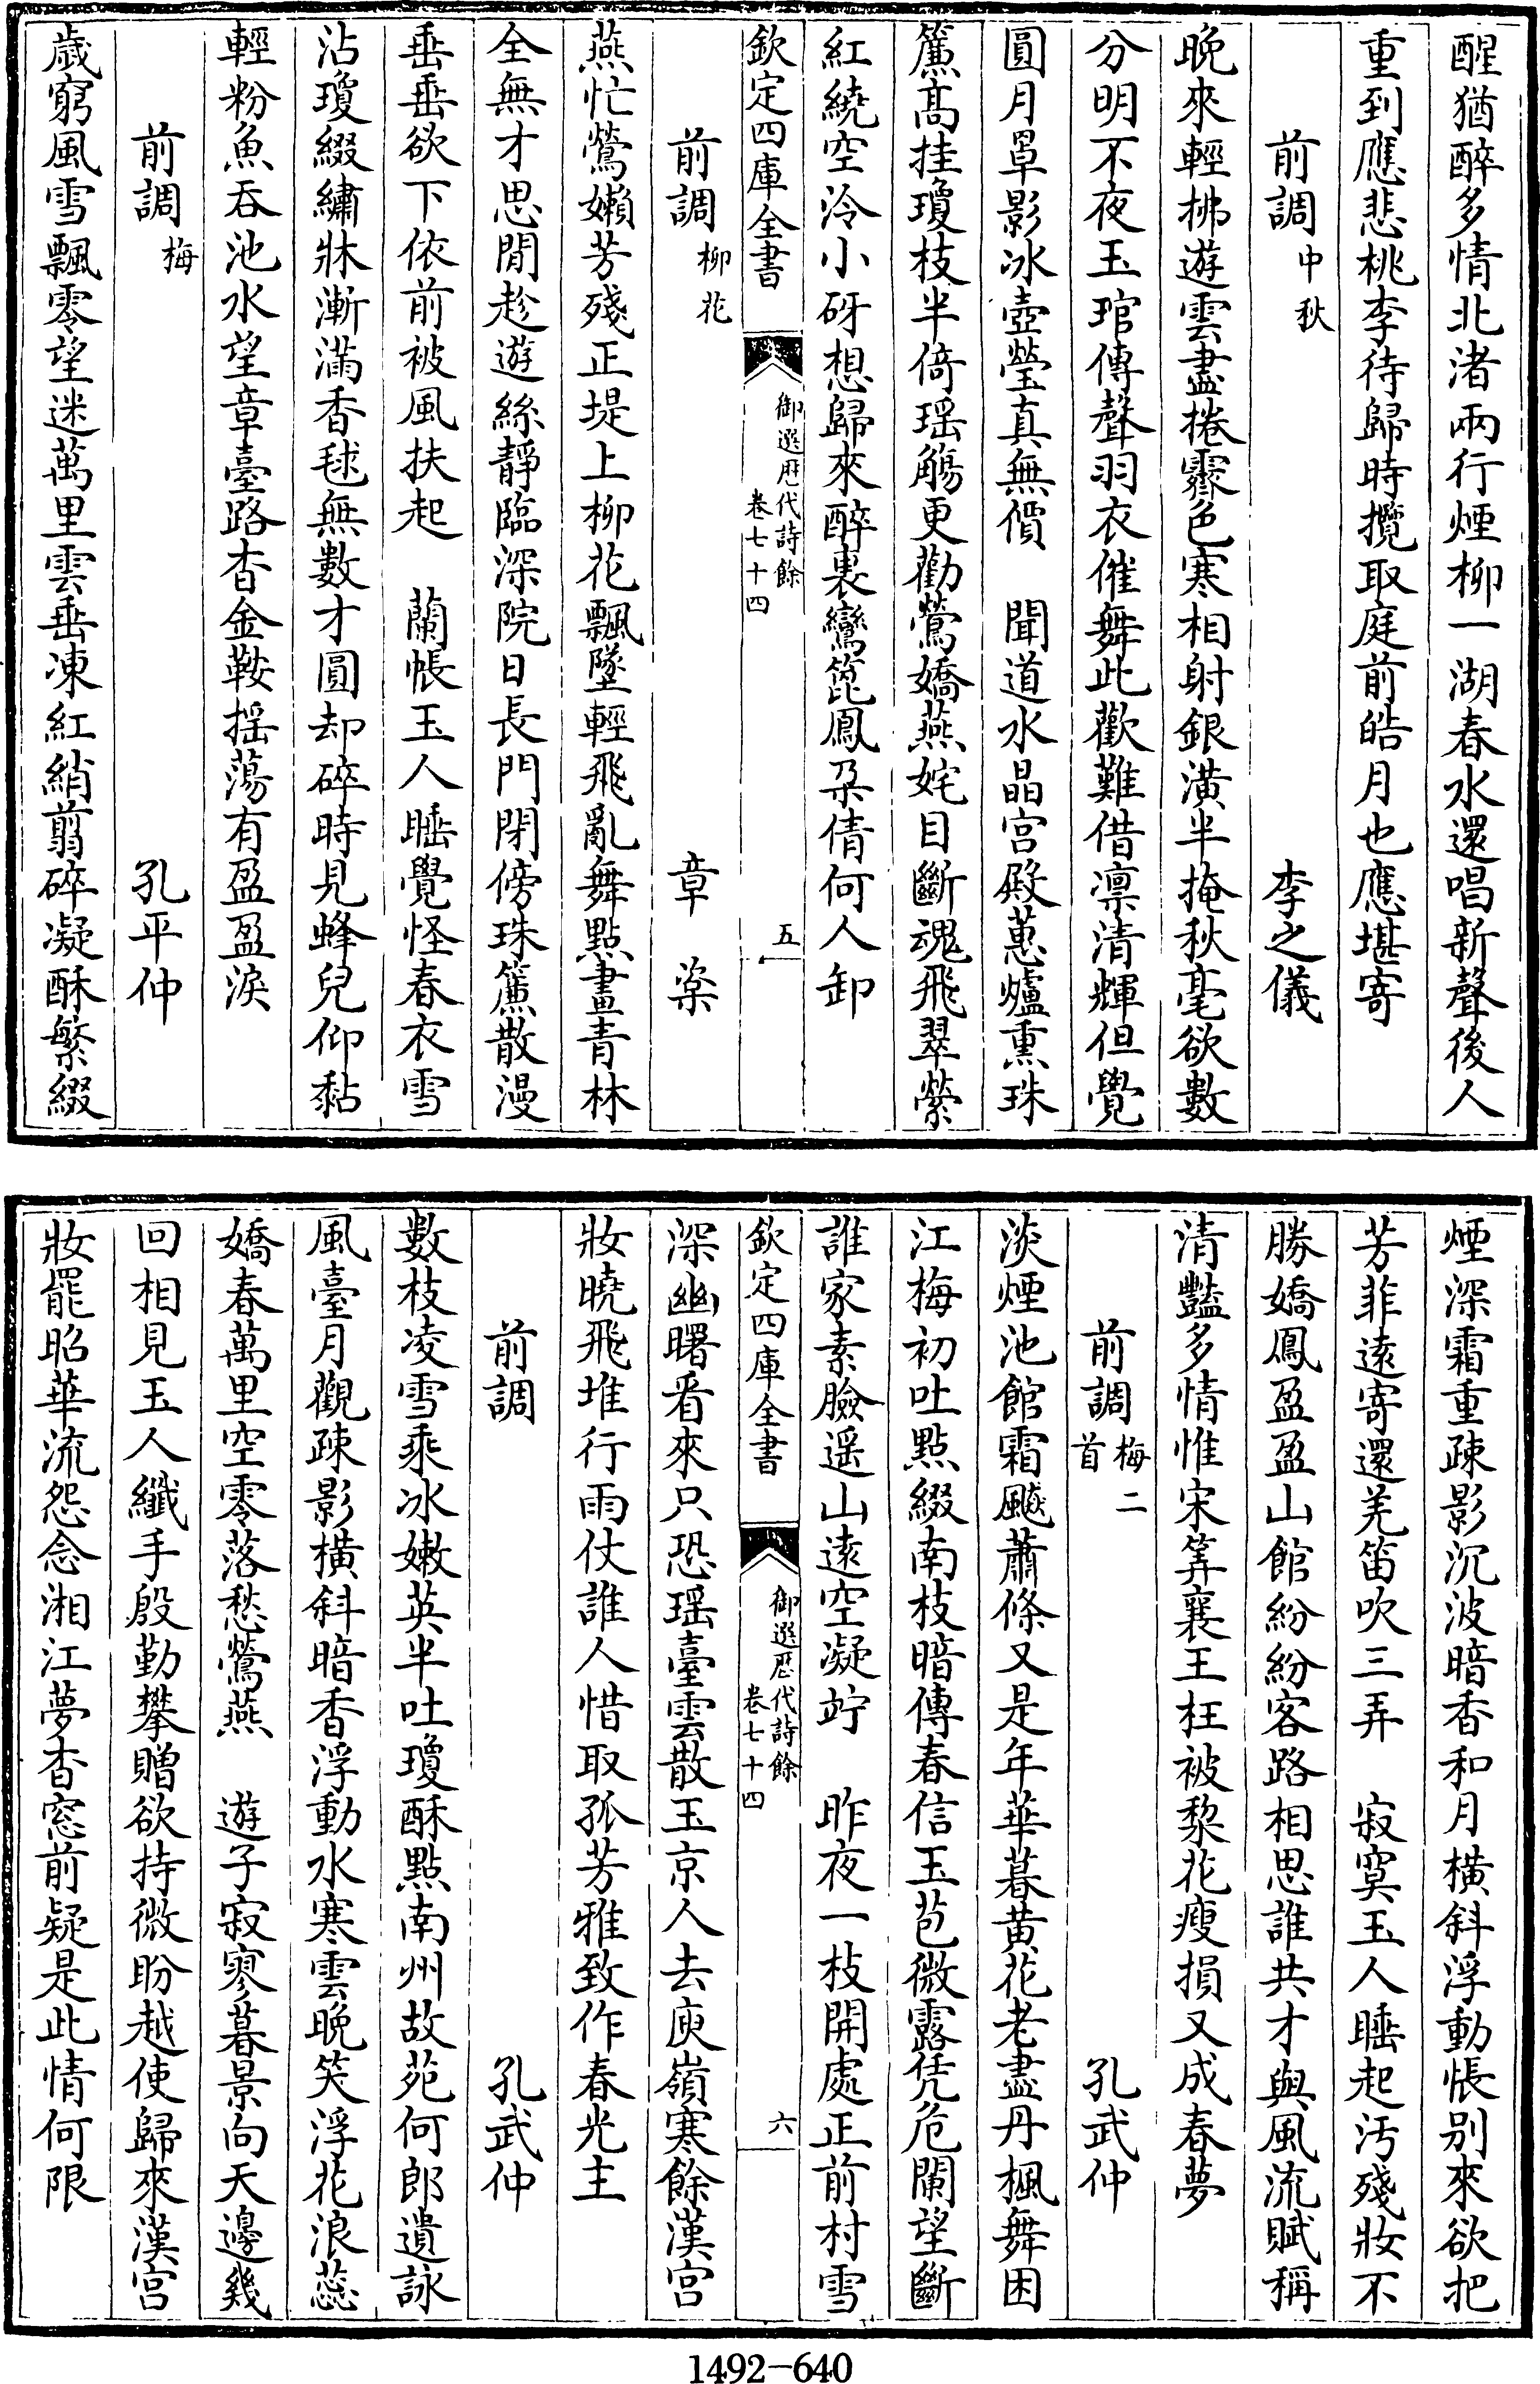 醒猶醉多情北渚兩行煙柳一湖春水還唱新聲後人
重到應悲桃李待歸時攬取庭前皓月也應堪寄
前調中秋　李之儀
晚來輕拂遊雲盡捲霽色寒相射銀潢半掩秋毫欲數
分明不夜玉琯傳聲羽衣催舞此歡難借凛清輝但覺
圓月罩影冰壺瑩真無價　聞道水晶宫殿蕙爐熏珠
簾髙挂瓊枝半倚瑶觴更勸鶯嬌燕姹目斷魂飛翠縈
紅繞空泠小砑想歸來醉裏鸞篦鳳朶倩何人卸
欽定四庫全書　御選歴代詩餘　卷七十四　五
前調柳花　章楶
燕忙鶯嬾芳殘正堤上柳花飄墜輕飛亂舞點畫青林
全無才思閒趁遊絲靜臨深院日長門閉傍珠簾散漫
垂垂欲下依前被風扶起　蘭帳玉人睡覺怪春衣雪
沾瓊綴繡牀漸滿香毬無數才圓却碎時見蜂兒仰黏
輕粉魚吞池水望章臺路杳金鞍揺蕩有盈盈淚
前調梅　孔平仲
歳窮風雪飄零望迷萬里雲垂凍紅綃翦碎凝酥繁綴
煙深霜重疎影沉波暗香和月橫斜浮動悵别來欲把
芳菲逺寄還羌笛吹三弄　寂寞玉人睡起汚殘妝不
勝嬌鳳盈盈山館紛紛客路相思誰共才與風流賦稱
清豔多情惟宋筭襄王枉被黎花瘦損又成春夢
前調梅二首　孔武仲
淡煙池館霜飈蕭條又是年華暮黄花老盡丹楓舞困
江梅初吐點綴南枝暗傳春信玉苞微露凭危闌望斷
誰家素臉遥山逺空凝竚　昨夜一枝開處正前村雪
欽定四庫全書　御選歴代詩餘　卷七十四　六
深幽曙看來只恐瑶臺雲散玉京人去庾嶺寒餘漢宫
妝曉飛堆行雨仗誰人惜取孤芳雅致作春光主
前調　孔武仲
數枝凌雪乘冰嫩英半吐瓊酥點南州故苑何郎遺詠
風臺月觀疎影橫斜暗香浮動水寒雲晚笑浮花浪蕊
嬌春萬里空零落愁鶯燕　遊子寂寥暮景向天邊幾
回相見玉人纖手殷勤攀贈欲持微盼越使歸來漢宫
妝罷昭華流怨念湘江夢杳窓前疑是此情何限
1492-640